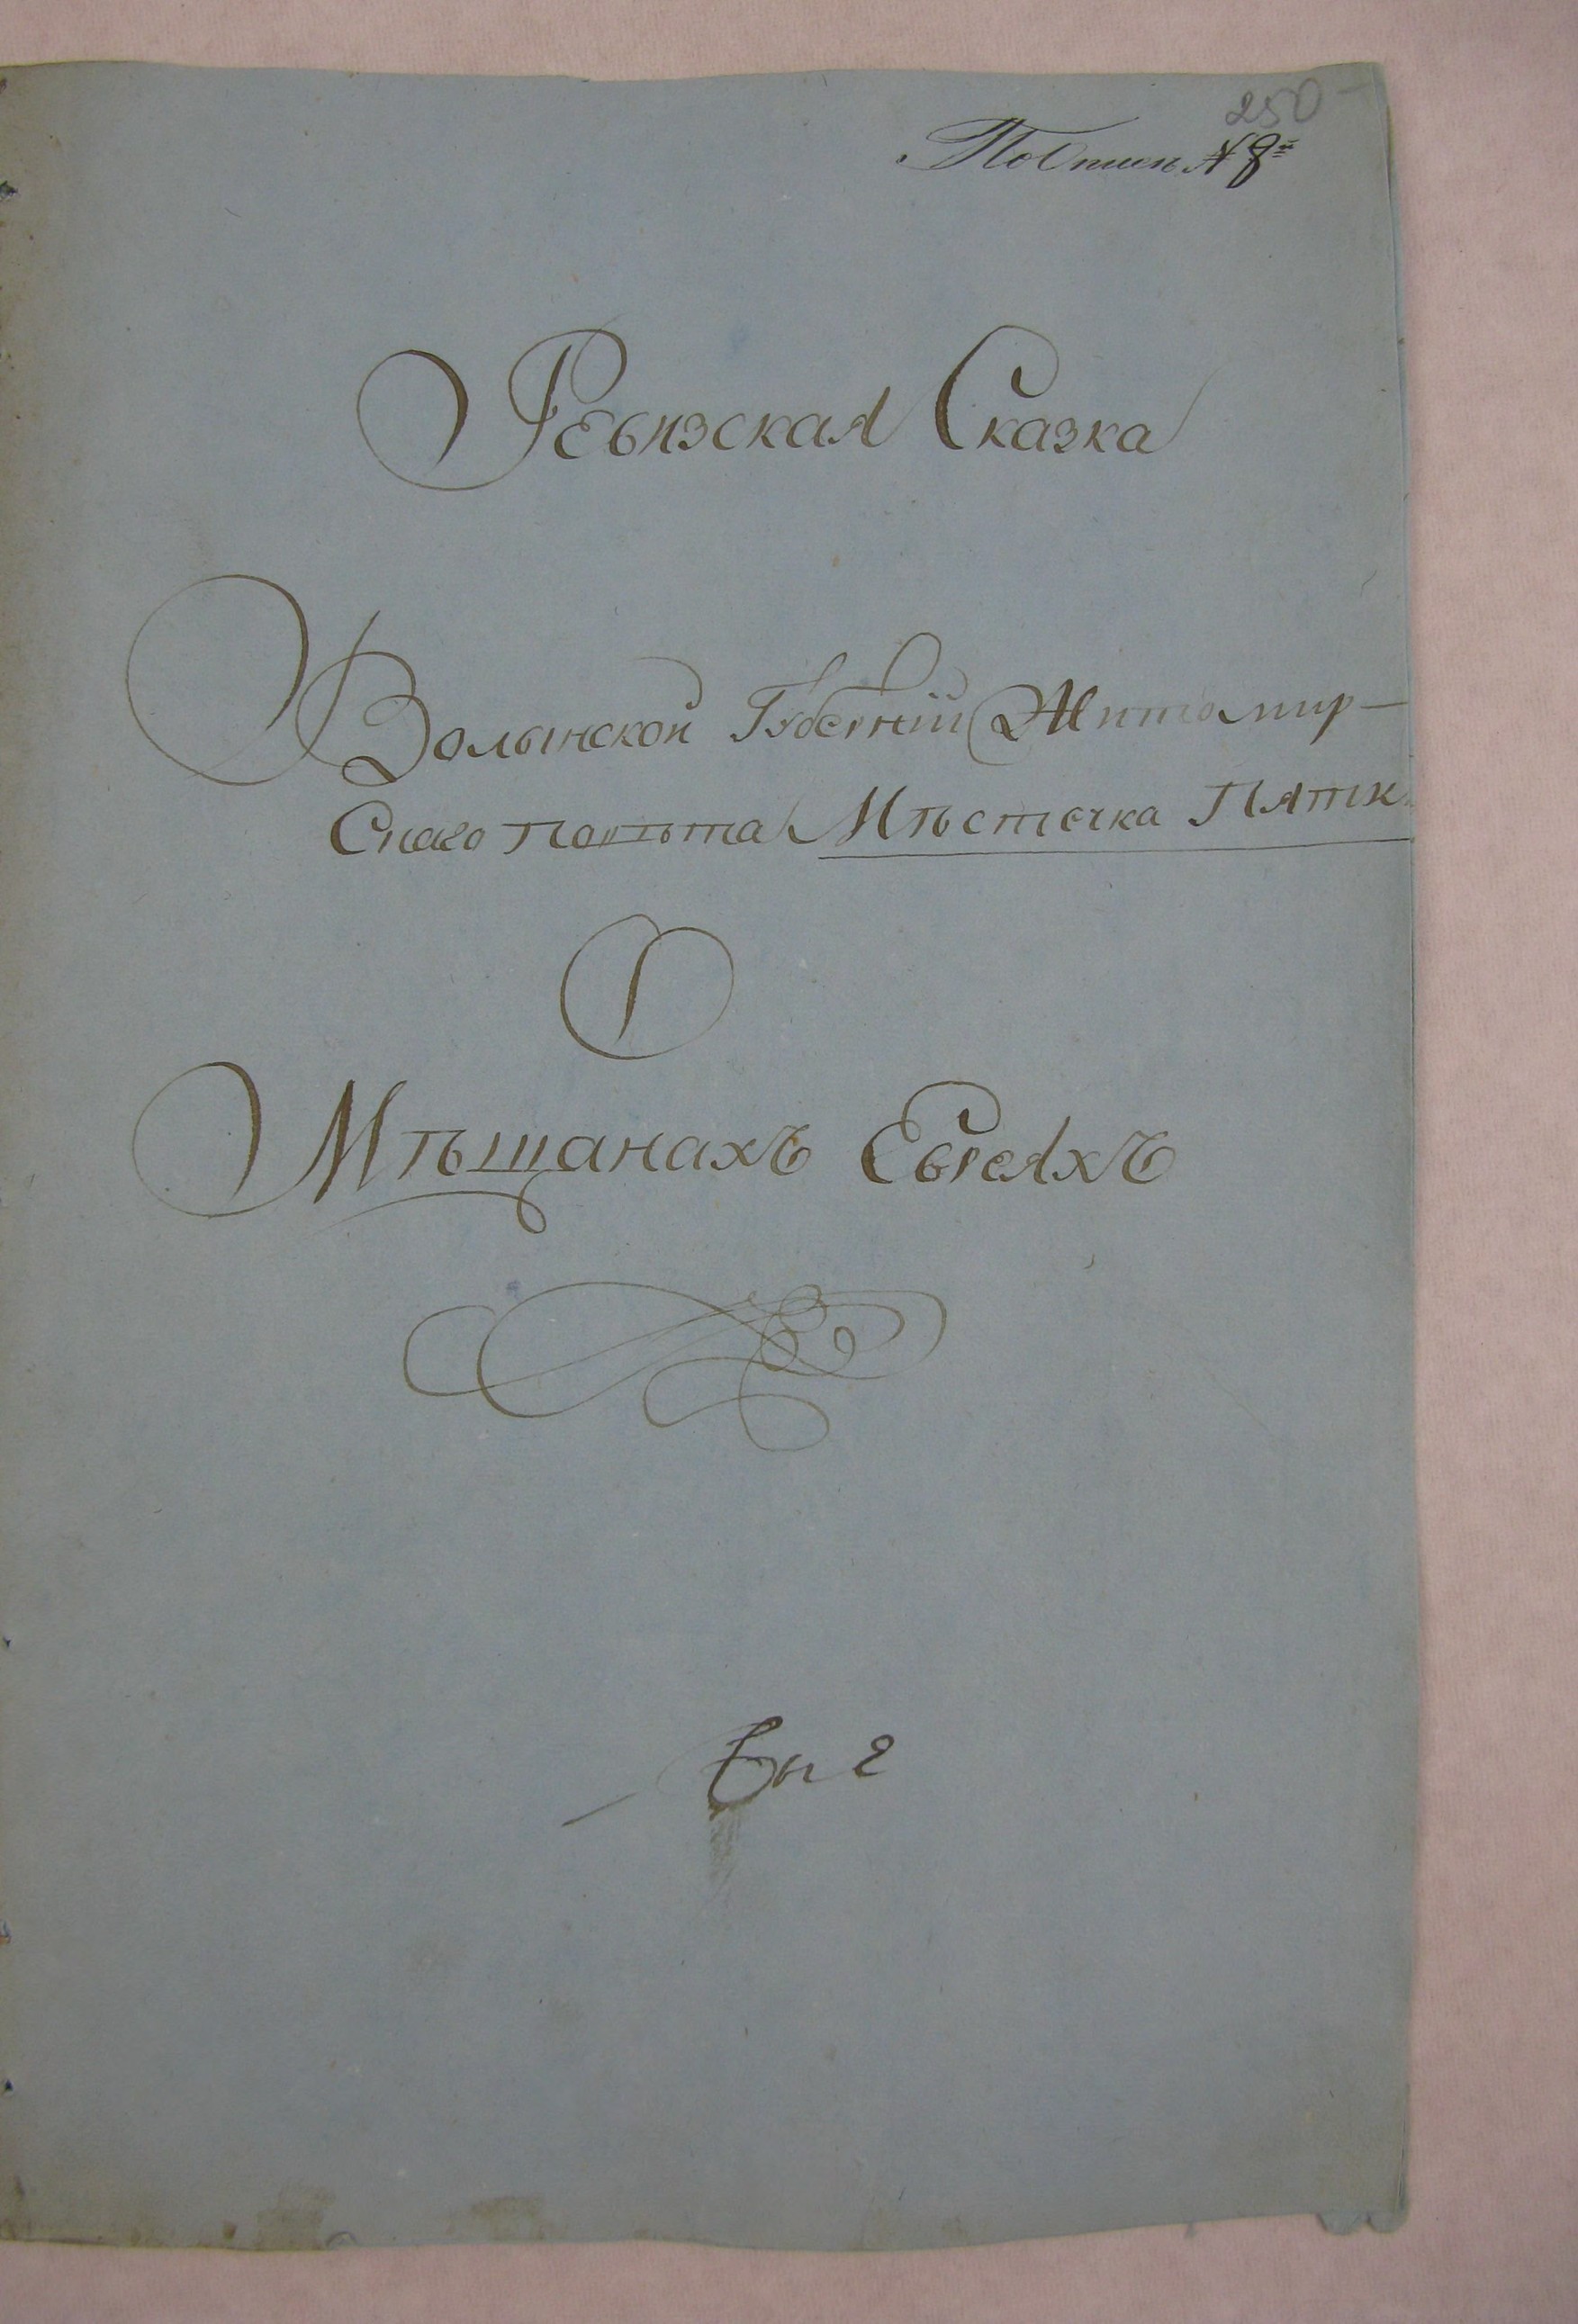 250
По Описи № 8й
Ревизская Сказка
Волынской Губернїи Житомир-
Скаго повѣта Мѣстечка Пятк
О
Мѣщанахъ Евреяхъ